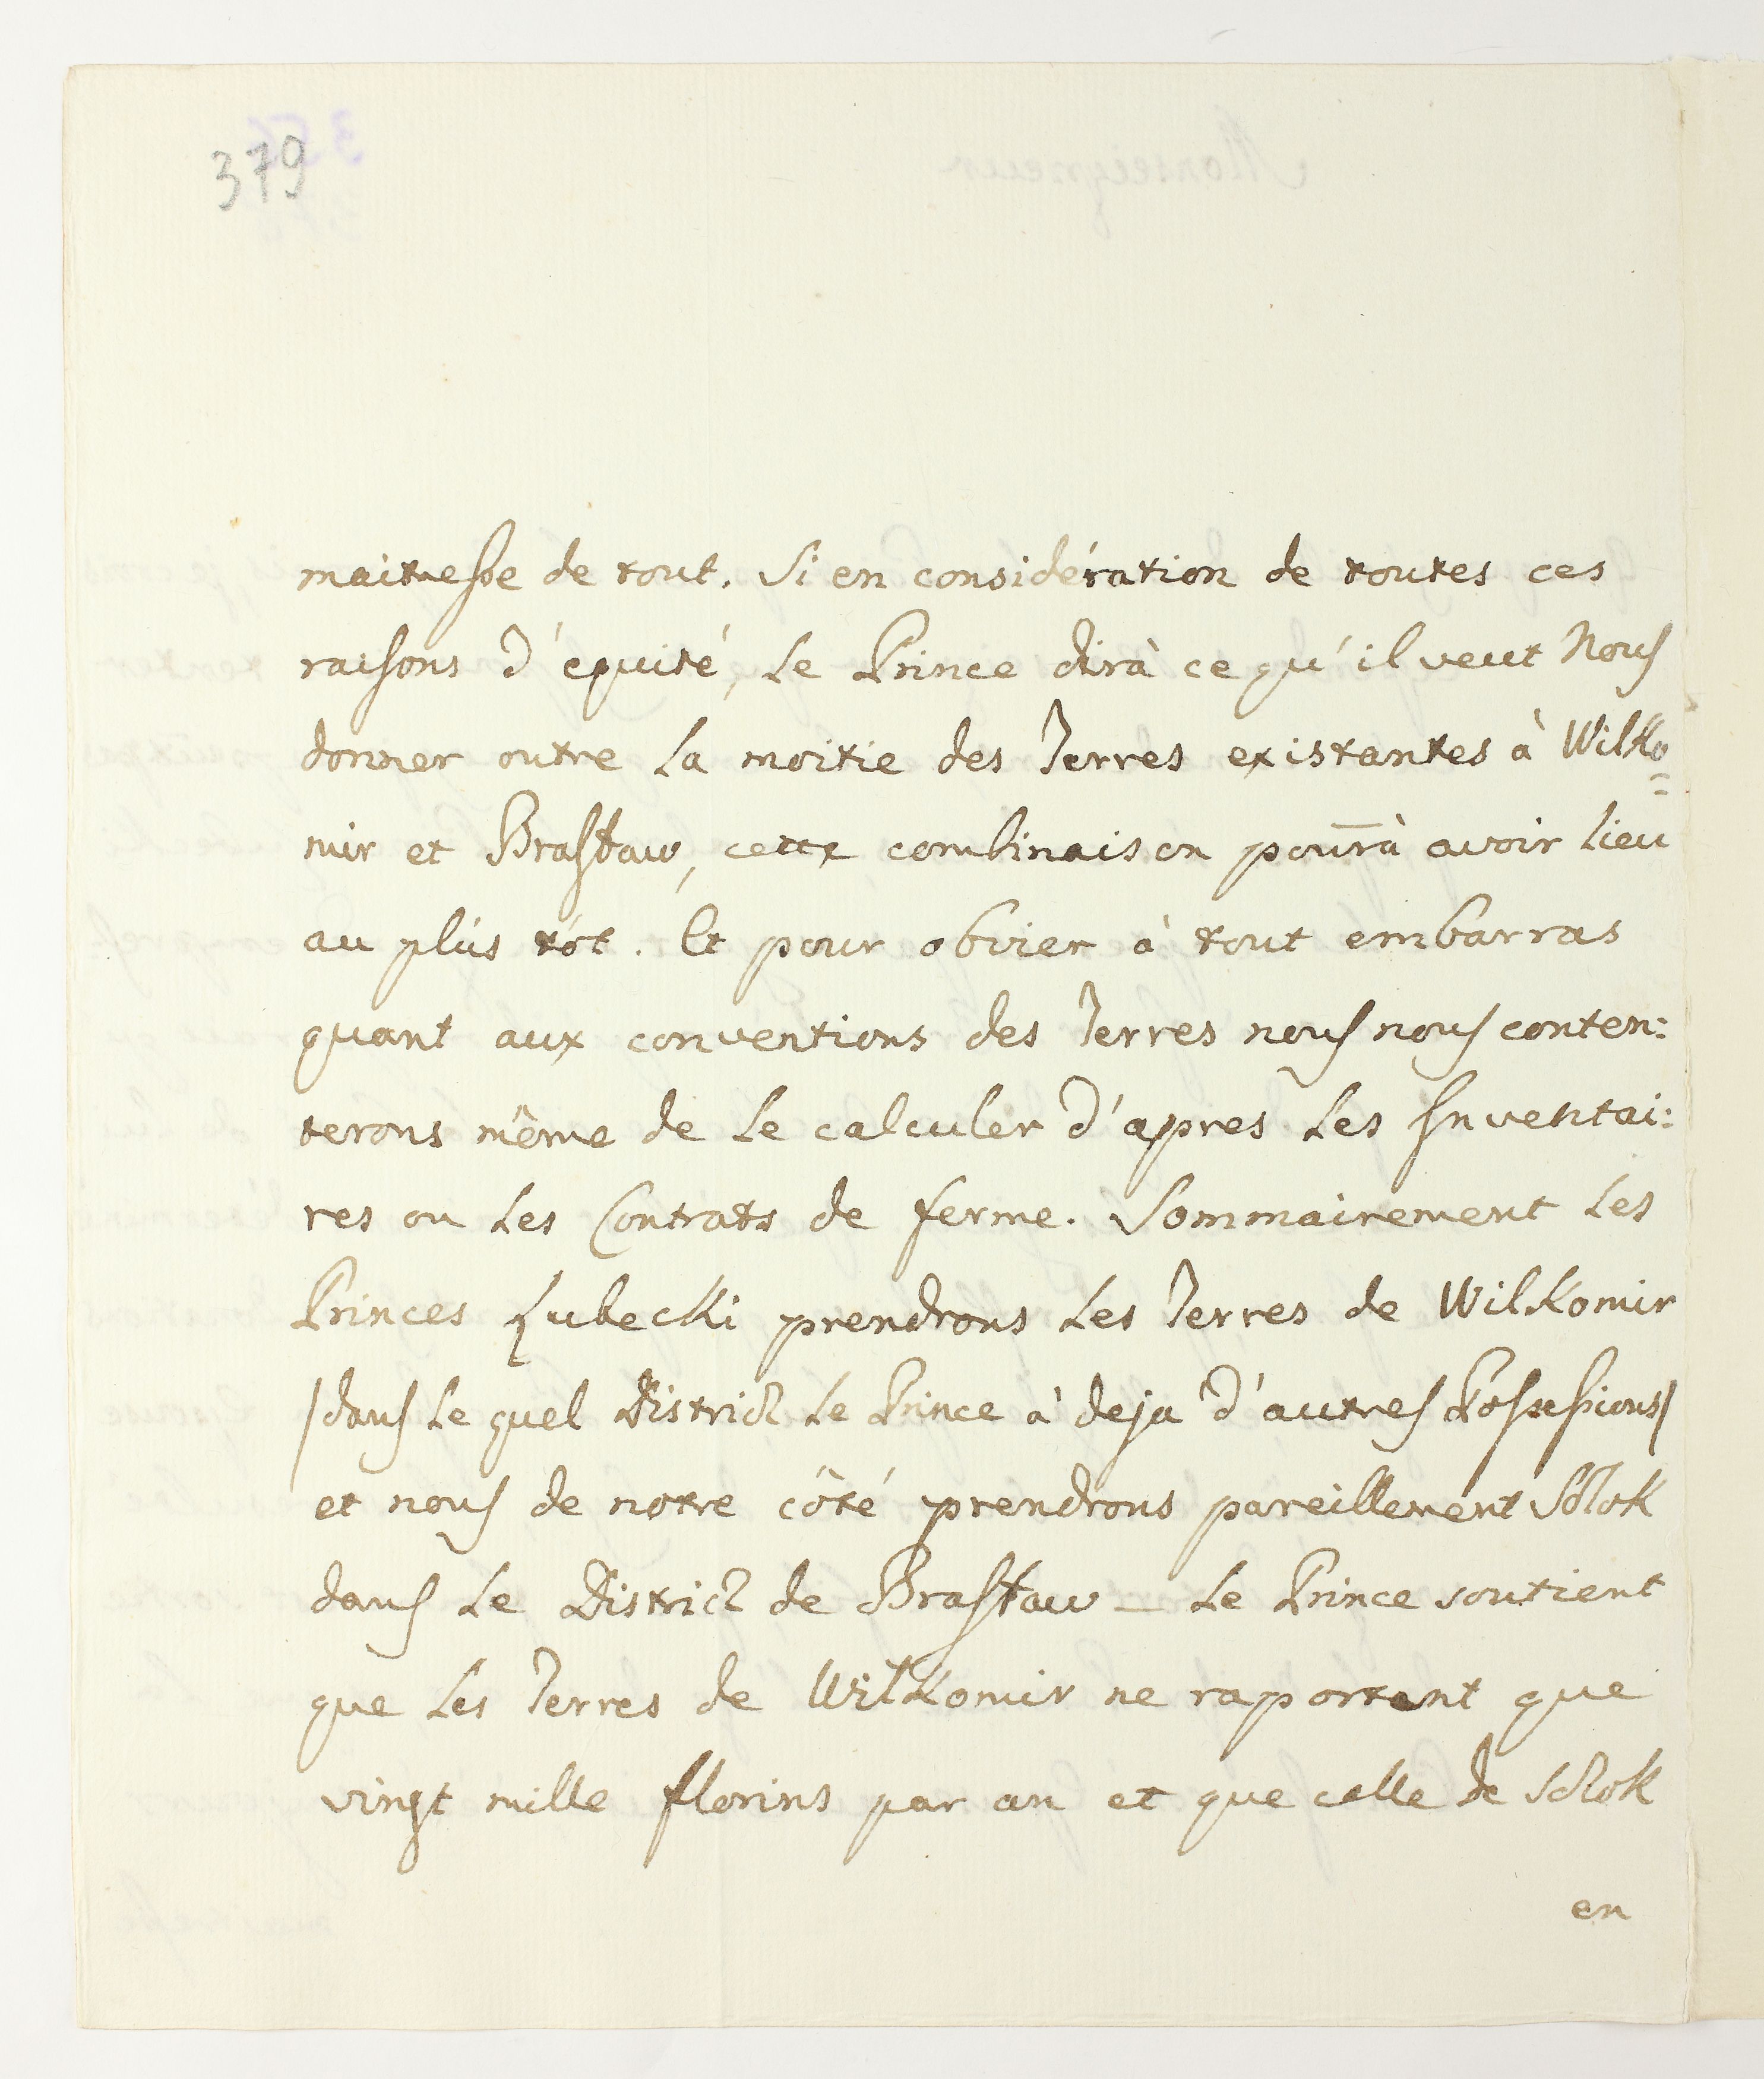 379
maitresse de tout. Si en considération de toutes ces
raisons d'équité, le Prince dirà ce qu'il veut Nous
donner outre la moitie des Terres existantes à Wilko=
mir et Brasław, cette combinaison pourà avoir lieu
au plûs tôt. Et pour obvier à tout embarras
quant aux conventions des Terres nous nous conten:
terons même de le calculer d'apres les Inventai:
res ou les Contrats de ferme. Sommairement les
Princes Lubecki prendrons les Terres de Wilkomir
/dans le quel District le Prince à deja d'autres Possessions/
et nous de notre côté prendrons pareillement Sołok
dans le District de Brasław — le Prince soutient
que les Terres de Wiłkomir ne raportent que
vingt mille florins par an et que celle de Sołok
en